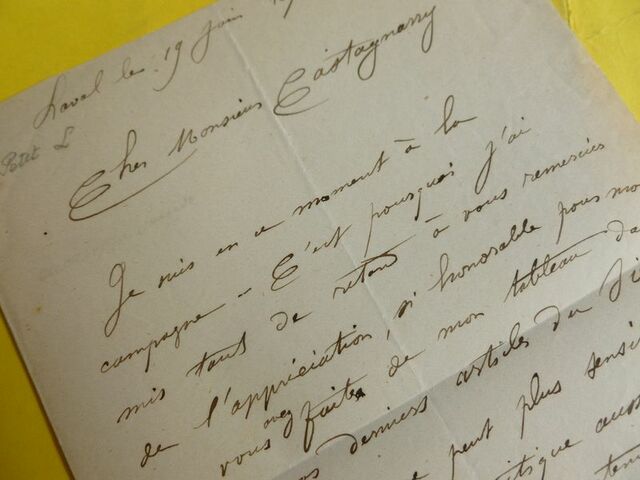 Laval le 19 Juin
Potet L
Cher Monsieur Castagnary
Je suis en ce moment à la
campagne - C'est pourquoi j'ai
mis tant de retard à vous remercier
de l'appréciation, si honorable pour mo
avez
vous faite de mon tableau da
derniers articles du Si
peut plus sensi
itique auss